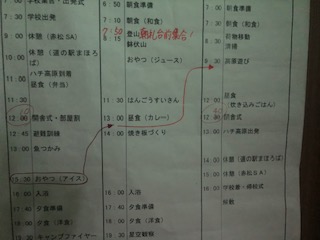 学校集合・出発式
学校出発
9:00 休憩（赤松SA）
休憩（道の駅まほろば）
11:00 ハチ高原到着
昼食（弁当）
11:30
12:00 開舎式・部屋割
12:45 避難訓練
13:00 魚つかみ
15:30 おやつ（アイス）
16:00 入浴
17:40 夕食準備
18:00 夕食（洋食）
19:30 キャンプファイヤー
朝食準備
朝食（和食）
7:50 朝礼台前集合!
8:15 登山
鉢伏山
おやつ（ジュース）
11:00 はんごうすいさん
13:00 昼食（カレー）
14:00 焼き板づくり
16:00 入浴
17:45 夕食準備
18:00 夕食（洋食）
19:30 星空観察
朝食準備
朝食（和食）
荷物移動
清掃
9:30 お茶遊び
12:00 昼食
（炊き込みごはん）
閉舎式
13:00 ハチ高原出発
休憩（道の駅まほろば）
休憩（赤松SA）
学校着・帰校式
解散